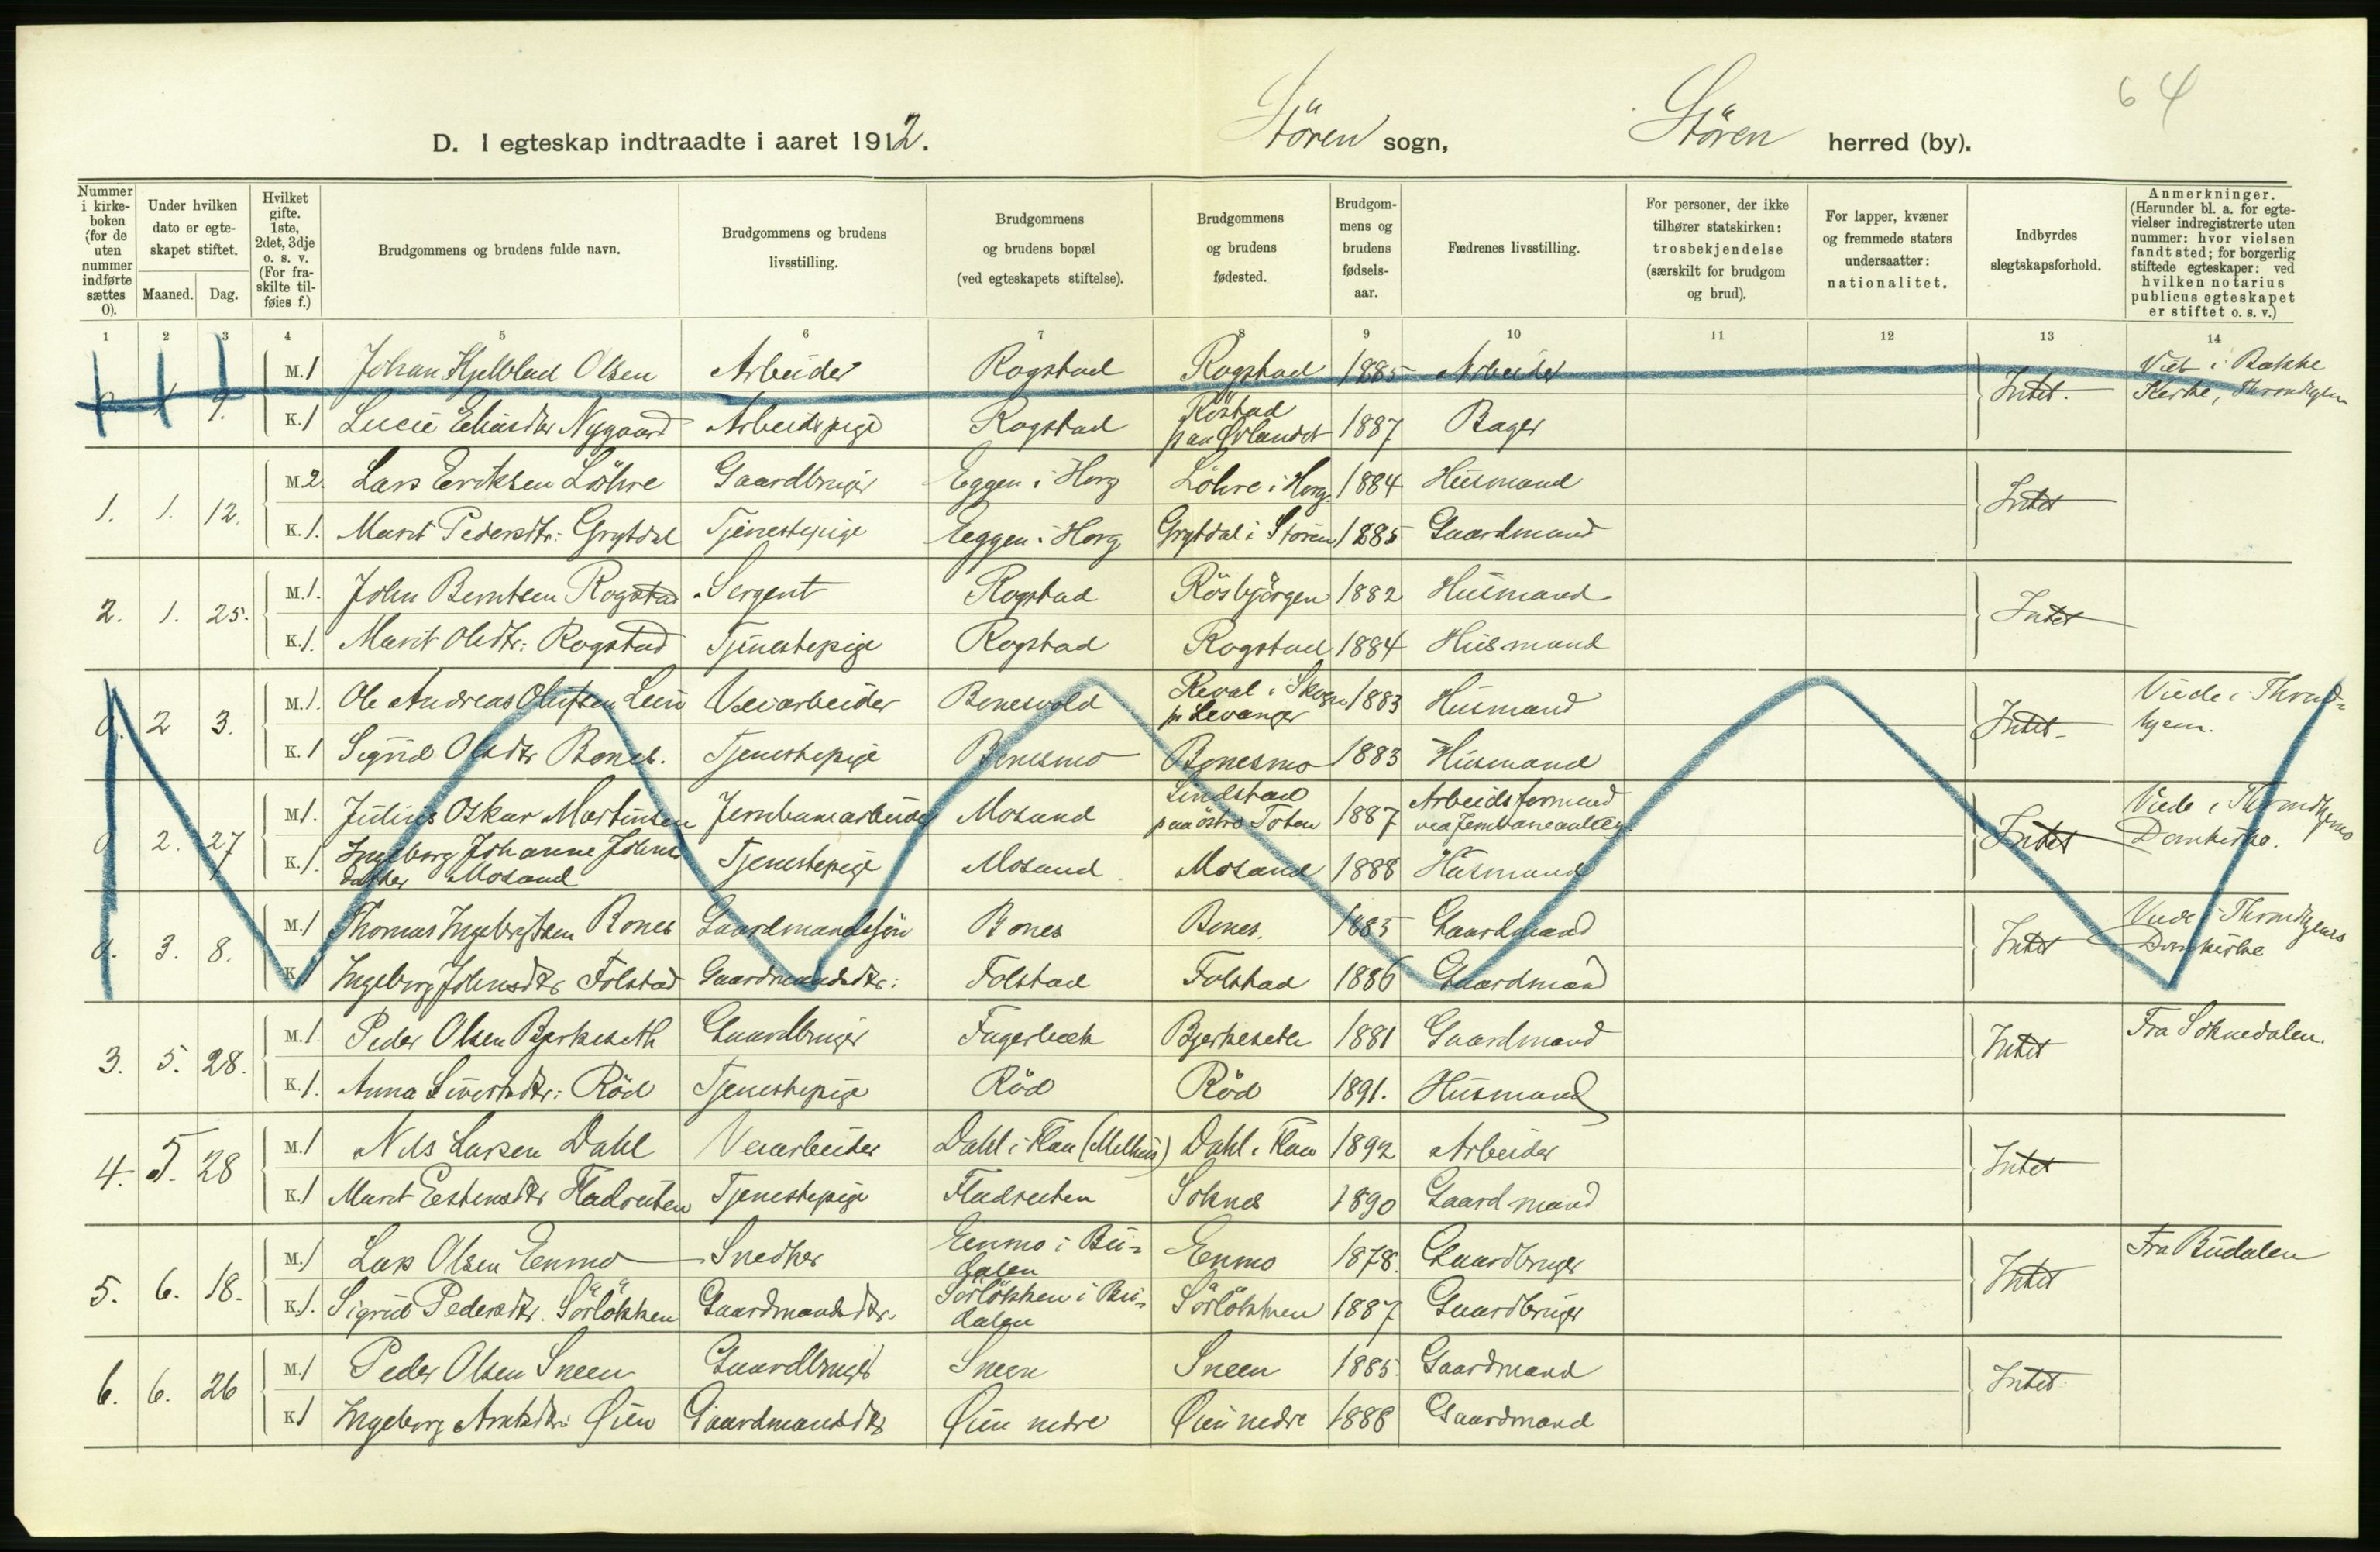 64
D. I egteskap indtraadte i aaret 1912. Stören sogn, Stören herred (by).
Nummer i kirke-boken (for de uten nummer indførte sættes 0).
Under hvilken dato er egte-skapet stiftet.
Maaned. Dag.
Hvilket gifte. 1ste, 2det, 3dje o. s. v. (For fra-skilte til-føies f.)
Brudgommens og brudens fulde navn.
Brudgommens og brudens livsstilling.
Brudgommens og brudens bopæl (ved egteskapets stiftelse).
Brudgommens og brudens fødested.
Brudgom-mens og brudens fødsels-aar.
Fædrenes livsstilling.
For personer, der ikke tilhører statskirken: trosbekjendelse (særskilt for brudgom og brud).
For lapper, kvæner og fremmede staters undersaatter: nationalitet.
Indbyrdes slegtskapsforhold.
Anmerkninger. (Herunder bl. a. for egte-vielser indregistrerte uten nummer: hvor vielsen fandt sted; for borgerlig stiftede egteskaper: ved hvilken notarius publicus egteskapet er stiftet o. s. v.)
1 2 3 4 5 6 7 8 9 10 11 12 13 14
M. 1 Johan Kjelblad Olsen Arbeider Rogstad Rogstad 1885 Arbeider Intet. Viet i Bakke Kirke, Throndhjem
K. 1 Lucie Eliasdtr Nygaard Arbeidspige Rogstad Röstad paa Ørlandet 1887 Bager
1. 1. 12. M. 2. Lars Eriksen Löhre Gaardbruger Eggen i Horg Löhre i Horg. 1884 Husmand Intet
K. 1. Marit Pedersdtr: Grytdal Tjenestepige Eggen i Horg Grytdal i Stören 1885 Gaardmand
2. 1. 25. M. 1. John Berntsen Rogstad Sergent Rogstad Rösbjörgen 1882 Husmand Intet
K. 1. Marit Olsdtr: Rogstad Tjenestepige Rogstad Rogstad 1884 Husmand
0. 2 3. M. 1. Ole Andreas Olufsen Lein Veiarbeider Bonesvold Reval i Skogn pr Levanger 1883 Husmand Intet Viede i Thrond-hjem.
K. 1 Sigrid Olsdtr Bones. Tjenestepige Bonesmo Bonesmo 1883 Husmand
0 2. 27 M. 1. Julius Oskar Martinsen Jernbanearbeider Mosand Lindstad paa östre Toten 1887 Arbeidsformand ved Jernbaneanlæg Intet Viede i Throndhjems Domkirke.
K. 1. Ingeborg Johanne Johns datter Mosand Tjenestepige Mosand Mosand 1888 Husmand
0. 3. 8. M. 1 Thomas Ingebrigtsen Bones Gaardmandssön Bones Bones. 1885 Gaardmand Intet Viede i Throndhjems Domkirke
K. Ingeborg Johnsdtr Folstad Gaardmandsdtr: Folstad Folstad 1886 Gaardmand
3. 5. 28. M. 1 Peder Olsen Bjerkeseth Gaardbruger Fagerbæk Bjerkeseth 1881 Gaardmand Intet Fra Soknedalen.
K. 1. Anna Sivertsdtr: Röd Tjenestepige Röd Röd 1891. Husmand
4. 5. 28 M. 1 Nils Larsen Dahl Veiarbeider Dahl i Flaa (Melhus) Dahl i Flaa 1892 Arbeider Intet
K. 1 Marit Estensdtr Fladreiten Tjenestepige Fladreiten Soknes 1890 Gaardmand
5. 6. 18. M. 1 Lars Olsen Enmo Snedker Enmo i Bu-dalen Enmo 1878. Gaardbruger Intet Fra Budalen
K. 1. Sigrid Pedersdtr. Sörlökken Gaardmandsdtr. Sörlökken i Bu-dalen Sörlökken 1887 Gaardbruger
6. 6. 26 M. 1 Peder Olsen Sneen Gaardbruger Sneen Sneen 1885. Gaardmand Intet
K. 1 Ingeborg Arntsdtr: Øien Gaardmandsdtr Øien nedre Øien nedre 1888 Gaardmand